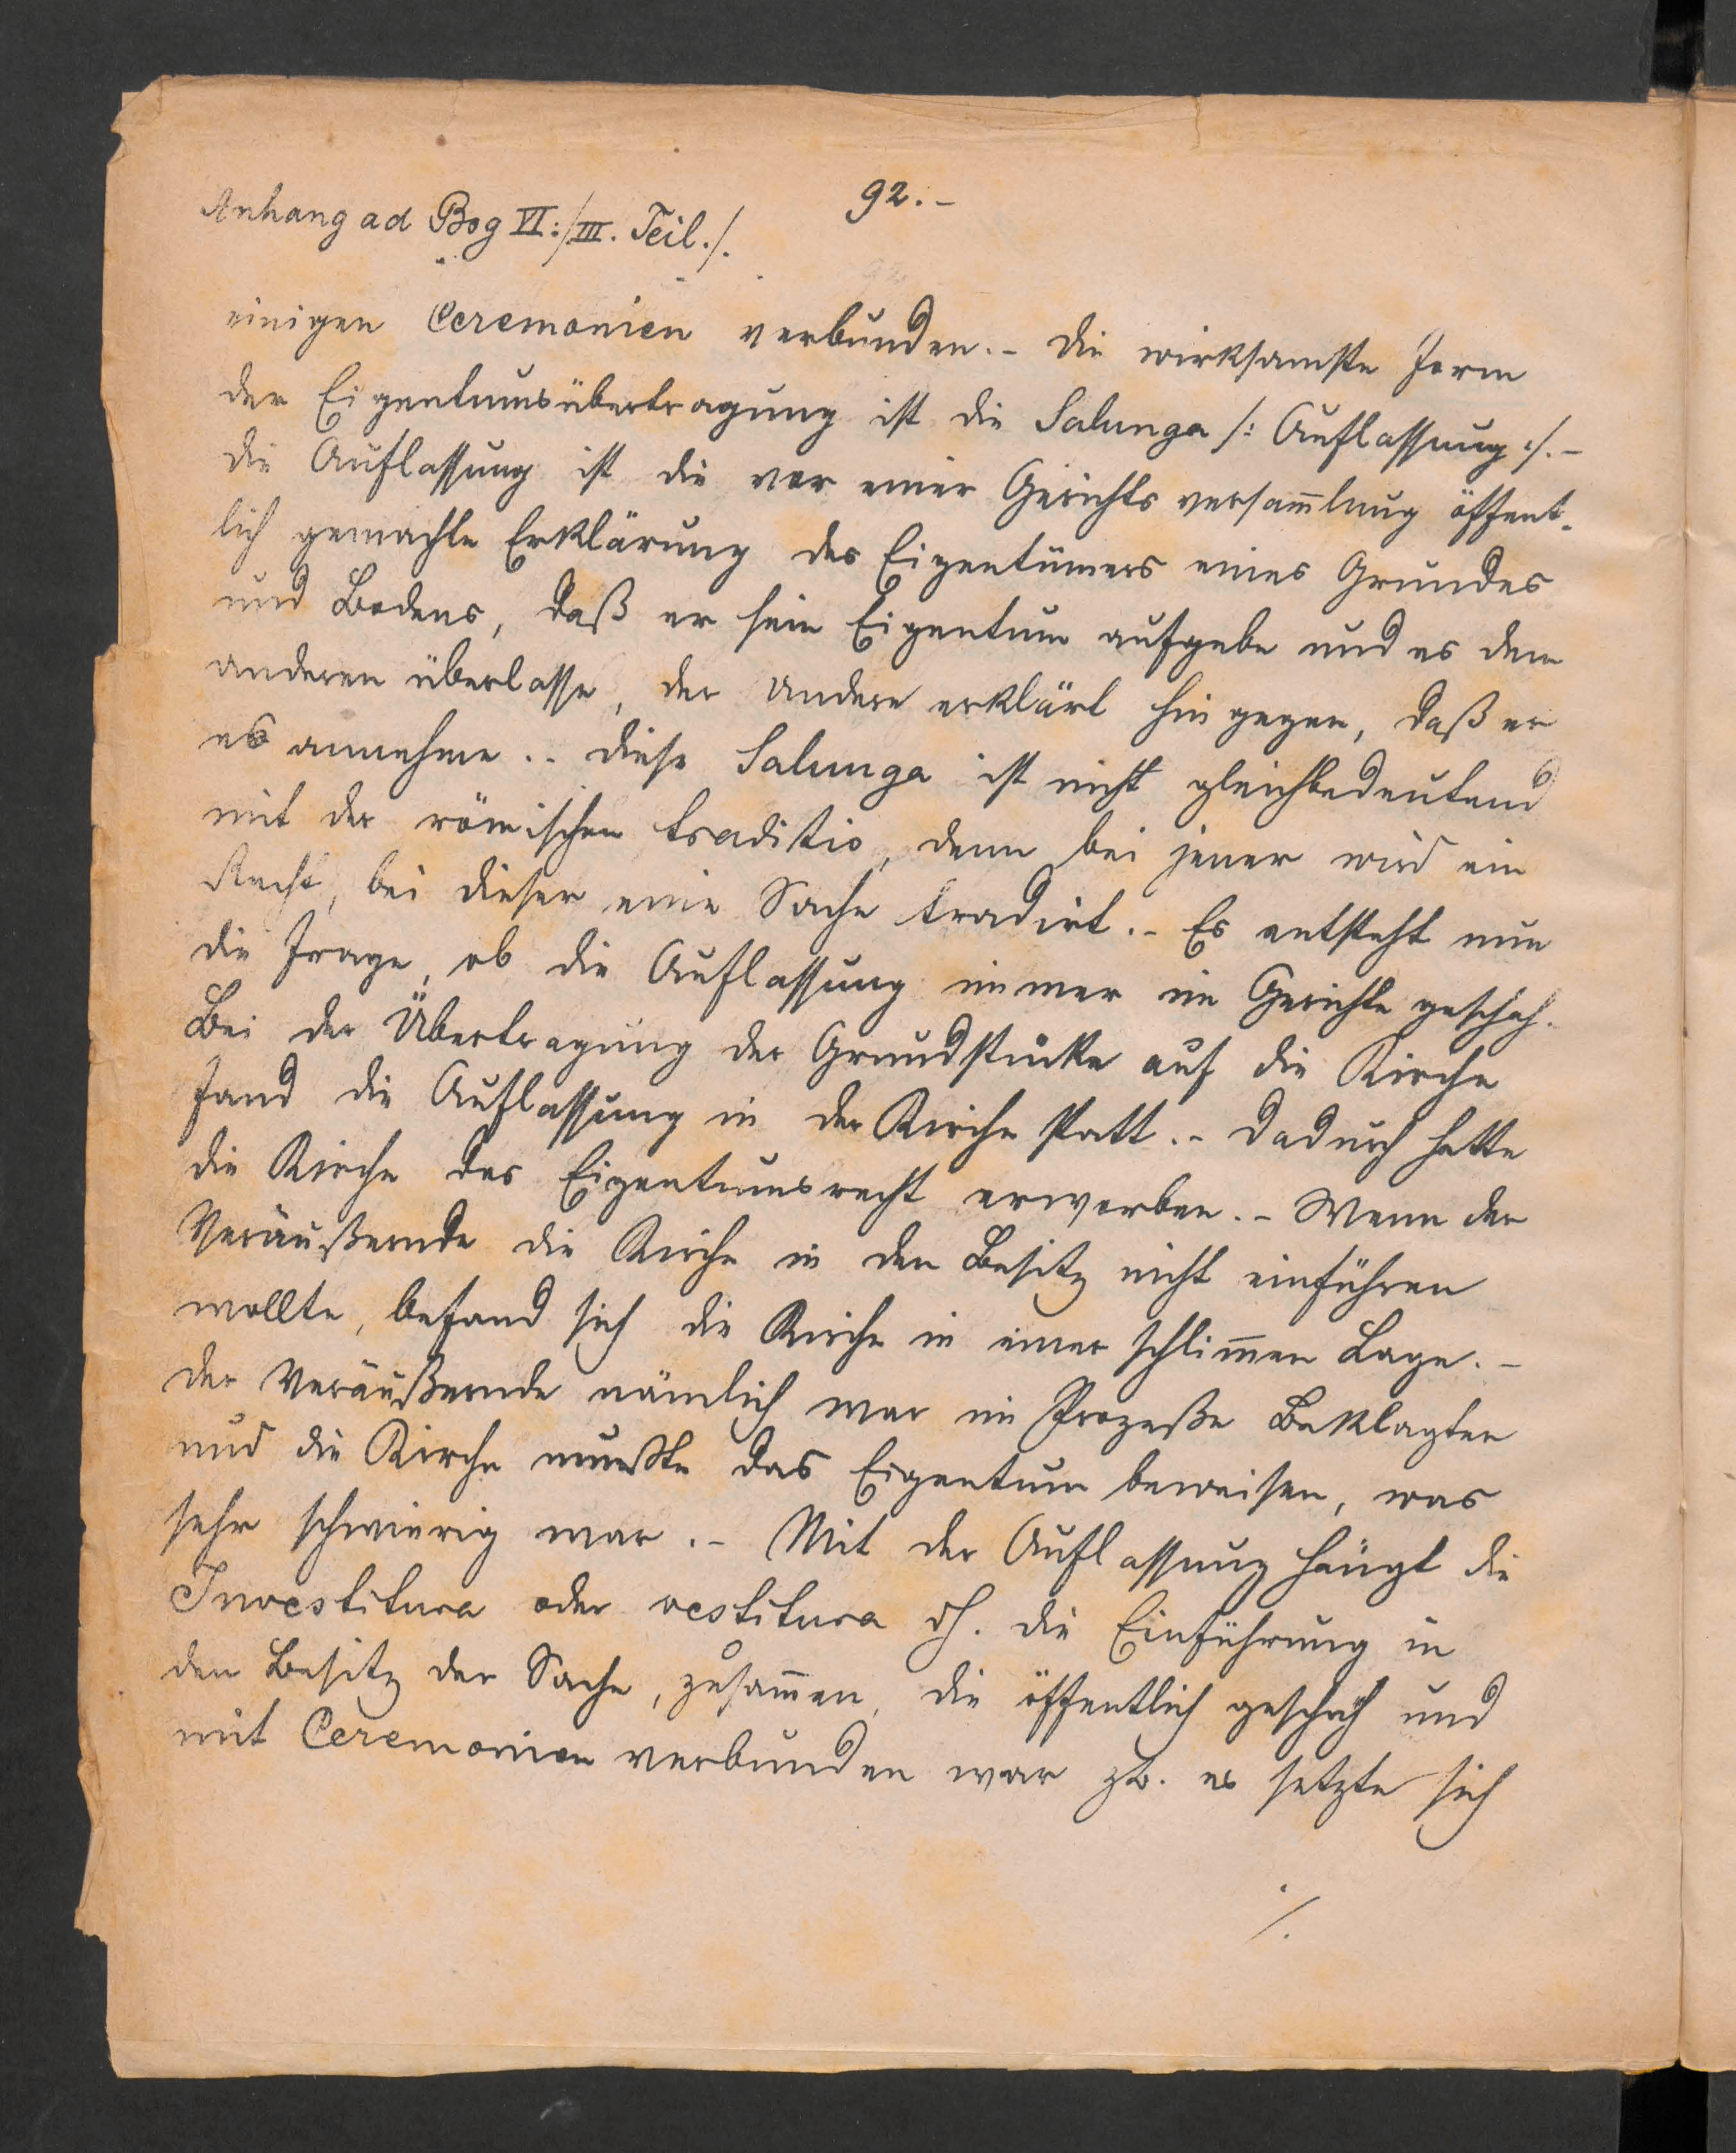 92.-
Anhang ad Bog VI:/III. Teil./.
einigen Ceremonien verbunden.- Die wirksamste Form
der Eigentumsübertragung ist die Salunga /: Auflassung :/.-
Die Auflassung ist die vor einer Gerichtsversam̄lung öffent-
lich gemachte Erklärung des Eigentümers eines Grundes
und Bodens, daß er sein Eigentum aufgebe und es dem
anderen überlasse, der Andere erklärt hingegen, daß er
es annehme.. Diese Salunga ist nicht gleichbedeutend
mit der römischen traditio, denn bei jener wird ein
Recht, bei dieser eine Sache tradirt.- Es entsteht nun
die Frage, ob die Auflassung immer im Gerichte geschah.
Bei der Übertragung der Grundstücke auf die Kirche
fand die Auflassung in der Kirche statt.- Dadurch hatte
die Kirche das Eigentumsrecht erworben.- Wenn der
Veräußernde die Kirche in den Besitz nicht einführen
wollte, befand sich die Kirche in einer schlim̄en Lage.-
Der Veräußernde nämlich war im Prozeße Beklagter
und die Kirche mußte das Eigentum beweisen, was
sehr schwierig war.- Mit der Auflassung hängt die
Investitura oder vestitura dh. die Einführung in
den Besitz der Sache, zusam̄en, die öffentlich geschah und
mit Ceremonien verbunden war zb. es setzte sich
./.